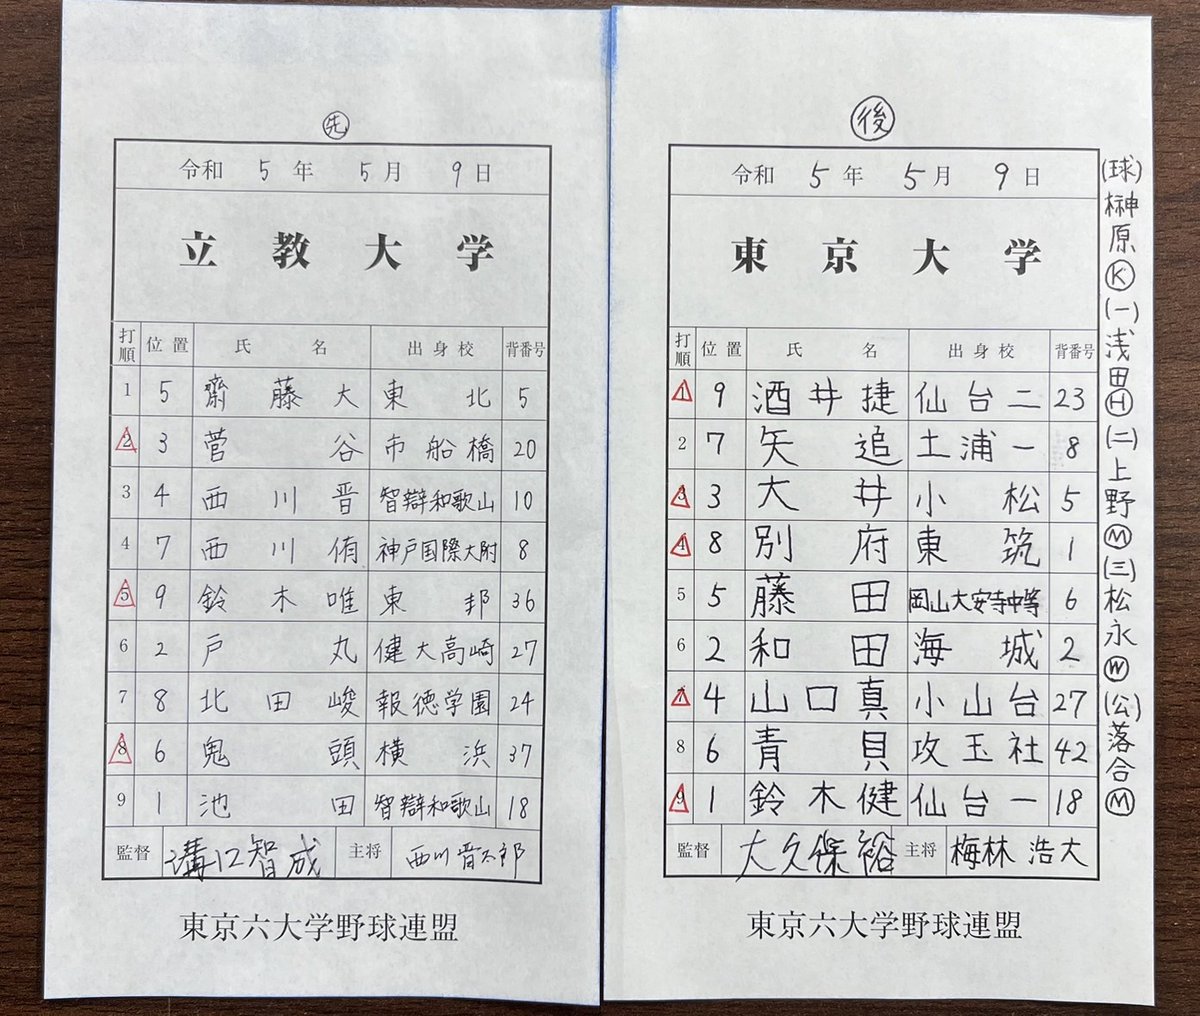 先
令和 5年 5月 9日
立教大学
打順 位置 氏名 出身校 背番号
1 5 齋藤大 東北 5
2 3 菅谷 市船橋 20
3 4 西川晋 智辯和歌山 10
4 7 西川侑 神戸国際大附 8
5 9 鈴木唯 東邦 36
6 2 戸丸 健大高崎 27
7 8 北田峻 報徳学園 24
8 6 鬼頭 横浜 37
9 1 池田 智辯和歌山 18
監督 溝口智成 主将 西川晋太郎
東京六大学野球連盟
後
令和 5年 5月 9日
東京大学
打順 位置 氏名 出身校 背番号
1 9 酒井捷 仙台二 23
2 7 矢追 土浦一 8
3 3 大井 小松 5
4 8 別府 東筑 1
5 5 藤田 岡山大安寺中等 6
6 2 和田 海城 2
7 4 山口真 小山台 27
8 6 青貝 攻玉社 42
9 1 鈴木健 仙台一 18
監督 大久保裕 主将 梅林浩大
東京六大学野球連盟
(球)榊原Ⓚ(一)浅田Ⓗ(二)上野Ⓜ(三)松永Ⓦ(公)落合Ⓜ